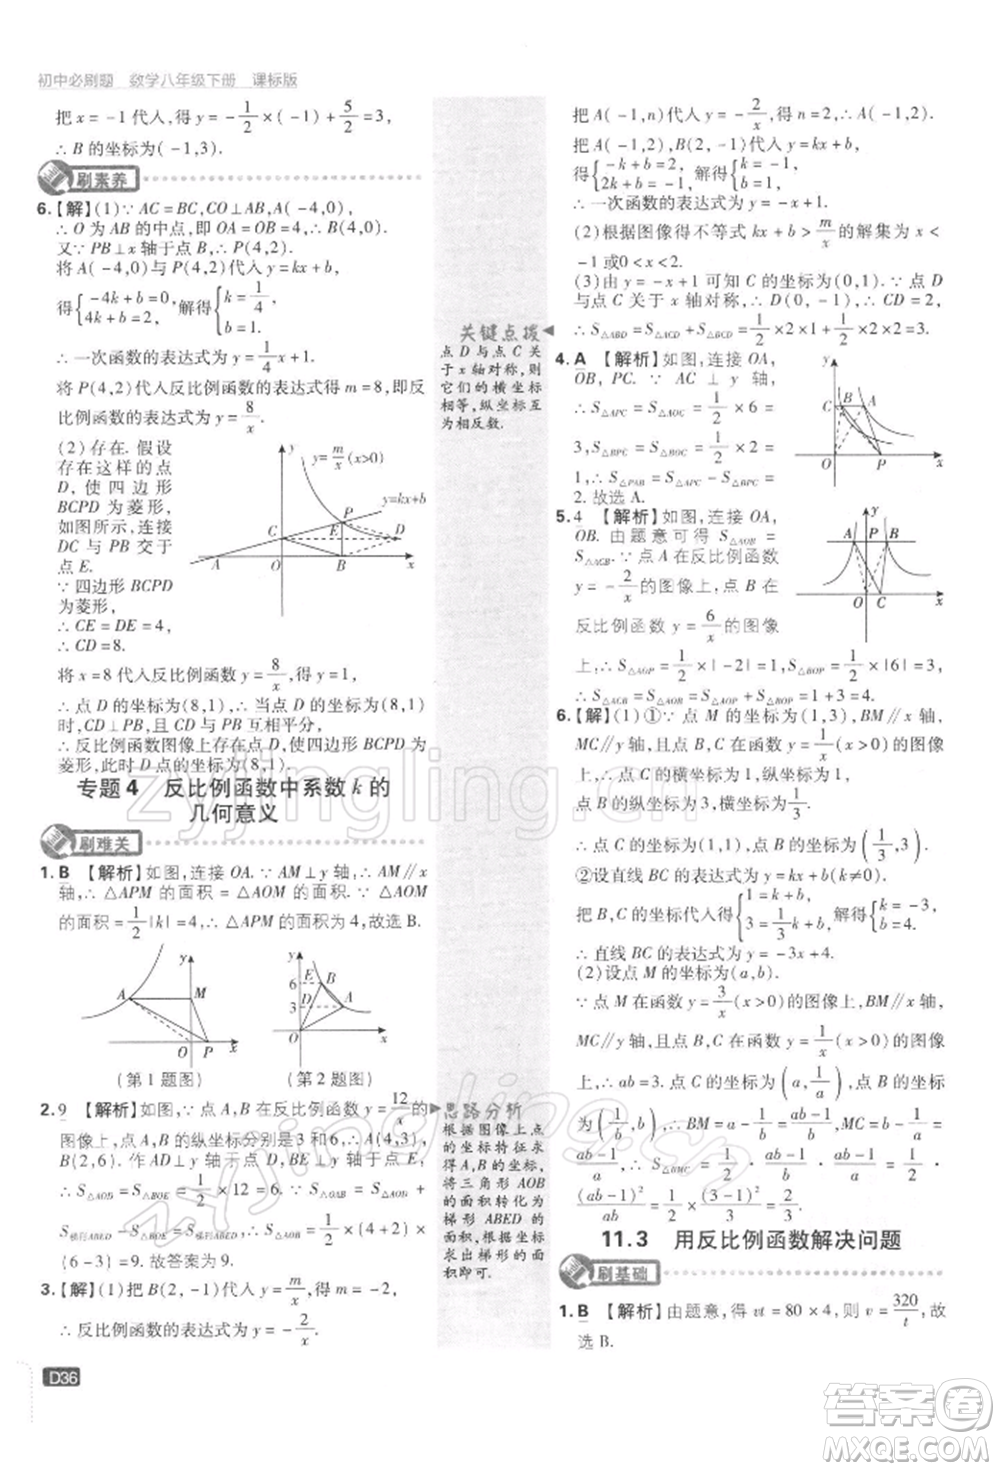 初中必刷题 数学八年级下册 课标版
把 x = -1 代入,得 y = -1/2 × (-1) + 5/2 = 3,
∴ B 的坐标为(-1,3).
刷素养
6.【解】(1)∵ AC = BC,CO⊥AB,A(-4,0),
∴ O 为 AB 的中点,即 OA = OB = 4,
又∵ PB⊥x 轴于点 B,∴ P(4,2).
将 A(-4,0)与 P(4,2)代入 y = kx + b,
得{-4k + b = 0, 4k + b = 2, 解得{k = 1/4, b = 1.
∴ 一次函数的表达式为 y = 1/4 x + 1.
将 P(4,2)代入反比例函数的表达式得 m = 8,即反
比例函数的表达式为 y = 8/x.
(2)存在. 假设
存在这样的点
D,使四边形
BCPD 为菱形,
如图所示,连接
DC 与 PB 交于
点 E.
∵ 四边形 BCPD
为菱形,
∴ CE = DE = 4,
∴ CD = 8.
y = m/x (x>0)
y = kx + b
y P C E D A O B x
将 x = 8 代入反比例函数 y = 8/x,得 y = 1,
∴ 点 D 的坐标为(8,1),∴ 当点 D 为(8,1)
时,CD⊥PB,且 CD 与 PB 互相平分,
∴ 反比例函数图像上存在点 D 使四边形 BCPD 为
菱形,此时点 D 的坐标为(8,1).
专题 4 反比例函数中系数 k 的
几何意义
刷难关
1. B 【解析】如图,连接 OA. ∵ AM⊥y 轴,∴ AM∥x
轴,∴ △APM 的面积 = △AOM 的面积. ∵ △AOM
的面积 = 1/2 |k| = 4,∴ △APM 的面积为 4,故选 B.
y A M O P x
(第 1 题图)
y 6 B 3 A 0 x
(第 2 题图)
2. 9 【解析】如图,∵ 点 A,B 在反比例函数 y = 12/x 的
图像上,点 A,B 的纵坐标分别是 3 和 6,∴ A(4,3),
B(2,6). 作 AD⊥y 轴于 D,BE⊥y 轴于 E,
∴ S△AOD = S△BOE = 1/2 × 12 = 6. ∵ S△OAB = S△AOD +
S梯形ABED - S△BOE = S梯形ABED,∴ S△AOB = 1/2 × (4 + 2) ×
(6 - 3) = 9. 故答案为 9.
3.【解】(1)把 B(2,-1)代入 y = m/x,得 m = -2,
∴ 反比例函数的表达式为 y = -2/x.
D36
关键点拨
点 D 与点 C 关
于 x 轴对称,则
它们的横坐标
相等,纵坐标互
为相反数.
思路分析
根据图像上点
的坐标特征求
得 A,B 的坐标,
将三角形 AOB
的面积转化为
梯形 ABED 的
面积,根据坐标
求出梯形的面
积即可.
把 A(-1,n)代入 y = -2/x,得 n = 2,∴ A(-1,2).
把 A(-1,2),B(2,-1)代入 y = kx + b,
得{-k + b = 2, 2k + b = -1, 解得{k = -1, b = 1.
∴ 一次函数的表达式为 y = -x + 1.
(2)根据图像得不等式 kx + b > m/x 的解集为 x <
-1 或 0 < x < 2.
(3)由 y = -x + 1 可知 C 的坐标为(0,1). ∵ 点 D
与点 C 关于 x 轴对称,∴ D(0,-1),∴ CD = 2,
∴ S△ABD = S△ACD + S△BCD = 1/2 ×2×1 + 1/2 ×2×2 = 3.
4. A 【解析】如图,连接 OA,
OB,PC. ∵ AC⊥y 轴,
∴ S△APC = S△AOC = 1/2 × 6 =
3,S△BPC = S△BOC = 1/2 × 2 =
1,∴ S△PAB = S△APC - S△BPC =
2. 故选 A.
y C B A O P x
5. 4 【解析】如图,连接 OA,
OB. 由题意可得 S△AOB =
S△ACB. ∵ 点 A 在反比例函数
y = -2/x 的图像上,点 B 在
反比例函数 y = 6/x 的图像
y A P B O C x
上,∴ S△AOP = 1/2 × |-2| = 1,S△BOP = 1/2 × |6| = 3,
∴ S△ACB = S△AOB = S△AOP + S△BOP = 1 + 3 = 4.
6.【解】(1)①∵ 点 M 的坐标为(1,3),BM∥x 轴,
MC∥y 轴,且点 B,C 在函数 y = 1/x (x > 0)的图像
上,∴ 点 C 的横坐标为 1,点 B 的纵坐标为 3,
∴ 点 C 的坐标为(1,1),点 B 的坐标为(1/3,3).
②设直线 BC 的表达式为 y = kx + b,
把 B,C 的坐标代入得{1 = k + b, 3 = 1/3 k + b, 解得{k = -3, b = 4.
∴ 直线 BC 的表达式为 y = -3x + 4.
(2)设点 M 的坐标为(a,b).
∵ 点 M 在函数 y = 3/x (x > 0)的图像上,BM∥x 轴,
MC∥y 轴,且点 B,C 在函数 y = 1/x (x > 0)的图像
上,∴ ab = 3,点 C 的坐标为(a,1/a),点 B 的坐标为
(1/b,b),∴ BM = a - 1/b = (ab - 1)/b,MC = b - 1/a =
(ab - 1)/a,∴ S△BMC = 1/2 · (ab - 1)/b · (ab - 1)/a = 1/2 ×
(ab - 1)²/ab = 1/2 × (3 - 1)²/3 = 2/3.
11.3 用反比例函数解决问题
刷基础
1. B 【解析】由题意,得 vt = 80 × 4,则 v = 320/t,故
选 B.
zyjingling.cn
zyjingling.cn
答案圈
MXQE.COM